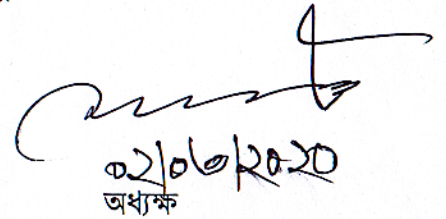 ০২/০৬/২০২০
অধ্যক্ষ